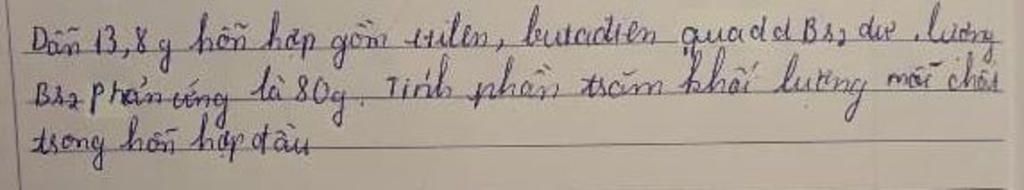 Dẫn 13,8 g hỗn hợp gồm etilen, butadien qua dd Br₂ dư. lượng
Br₂ phản ứng là 80g. Tính phần trăm khối lượng mỗi chất
trong hỗn hợp đầu